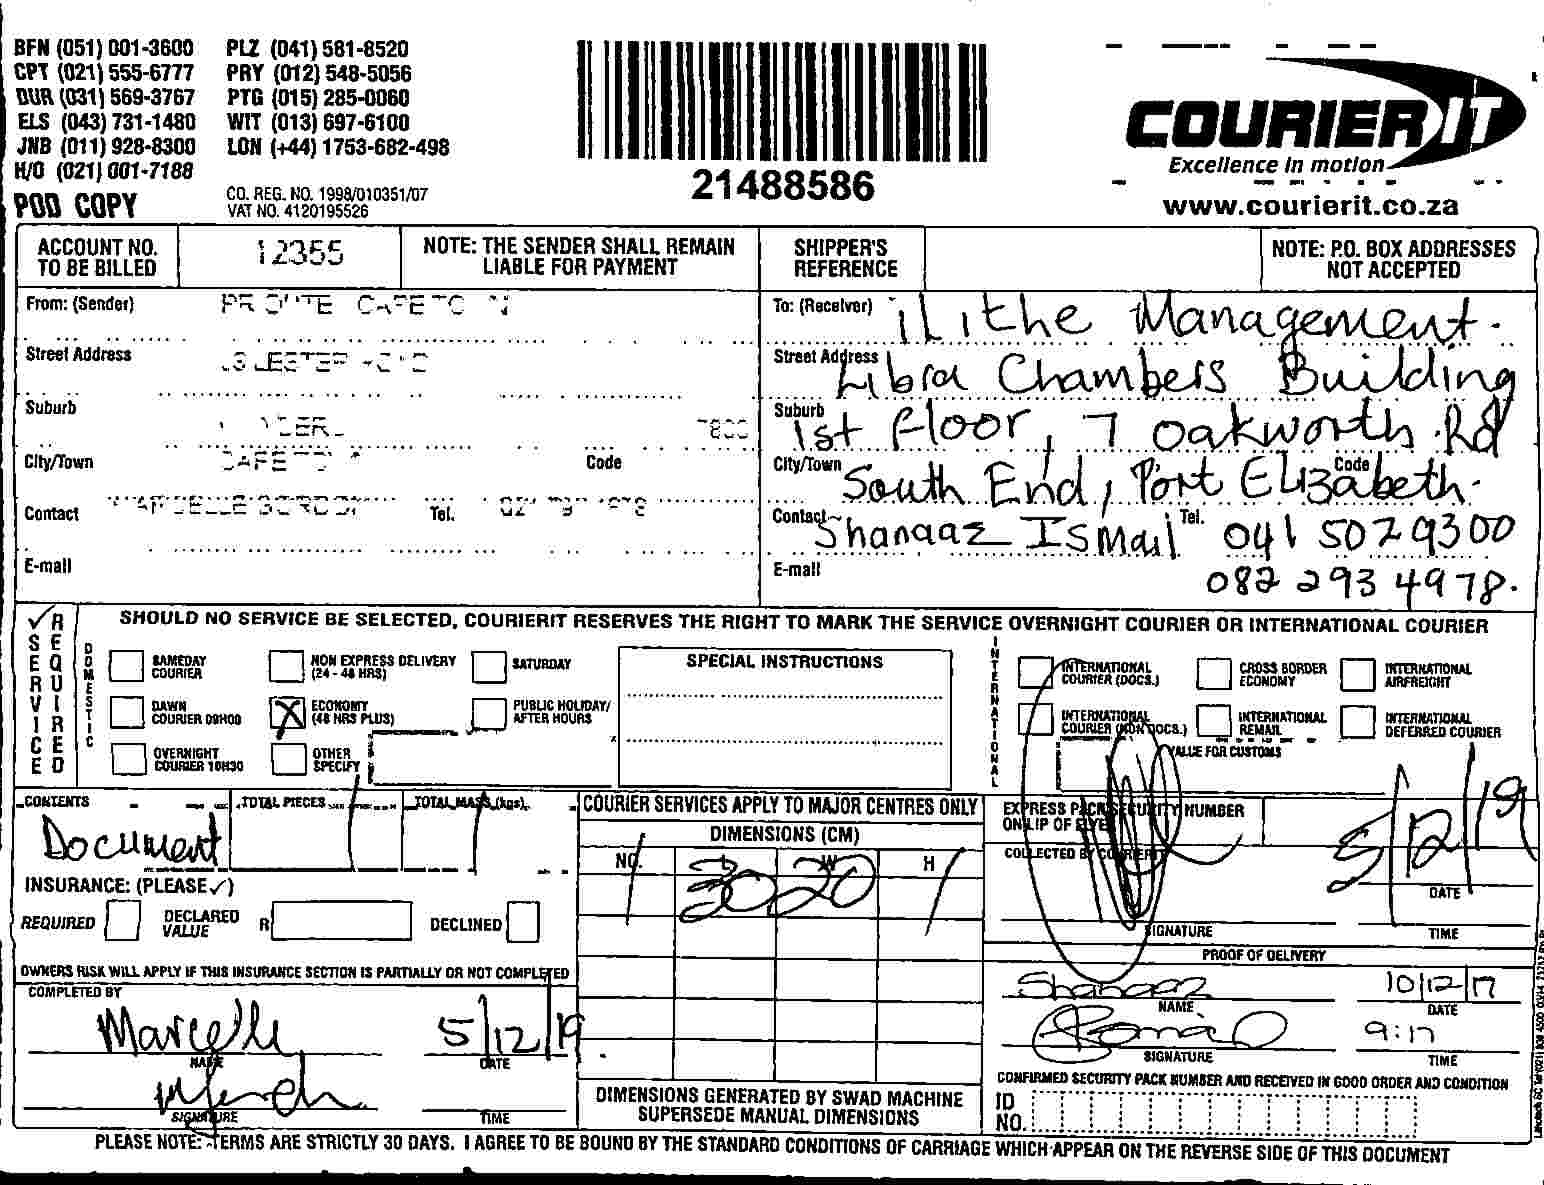 BFN (051) 001-3600 PLZ (041) 581-8520
CPT (021) 555-6777 PRY (012) 548-5056
DUR (031) 569-3767 PTG (015) 285-0060
ELS (043) 731-1480 WIT (013) 697-6100
JNB (011) 928-8300 LON (+44) 1753-682-498
H/O (021) 001-7188
POD COPY
CO. REG. NO. 1998/010351/07
VAT NO. 4120195526
21488586
COURIER IT
Excellence in motion
www.courierit.co.za
ACCOUNT NO. TO BE BILLED
12355
NOTE: THE SENDER SHALL REMAIN LIABLE FOR PAYMENT
SHIPPER'S REFERENCE
NOTE: P.O. BOX ADDRESSES NOT ACCEPTED
From: (Sender)
Street Address
Suburb 7800
City/Town Code
Contact Tel.
E-mail
To: (Receiver) iLithe Management.
Street Address Libra Chambers Building
Suburb 1st floor, 7 Oakworth Rd
City/Town South End, Port Elizabeth. Code
Contact Shanaaz Ismail Tel. 041 5029300
E-mail 082 293 4978.
SERVICE REQUIRED
SHOULD NO SERVICE BE SELECTED, COURIERIT RESERVES THE RIGHT TO MARK THE SERVICE OVERNIGHT COURIER OR INTERNATIONAL COURIER
DOMESTIC
SAMEDAY COURIER
NON EXPRESS DELIVERY (24 - 48 HRS)
SATURDAY
DAWN COURIER 09H00
X ECONOMY (48 HRS PLUS)
PUBLIC HOLIDAY/ AFTER HOURS
OVERNIGHT COURIER 10H30
OTHER SPECIFY
SPECIAL INSTRUCTIONS
INTERNATIONAL
INTERNATIONAL COURIER (DOCS.)
CROSS BORDER ECONOMY
INTERNATIONAL AIRFREIGHT
INTERNATIONAL COURIER (NON DOCS.)
INTERNATIONAL REMAIL
INTERNATIONAL DEFERRED COURIER
VALUE FOR CUSTOMS
CONTENTS
Document
TOTAL PIECES
1
TOTAL MASS (kgs)
1
INSURANCE: (PLEASE ✓)
REQUIRED DECLARED VALUE R DECLINED
OWNERS RISK WILL APPLY IF THIS INSURANCE SECTION IS PARTIALLY OR NOT COMPLETED
COMPLETED BY
Marcelle 5/12/19
NAME DATE
SIGNATURE TIME
COURIER SERVICES APPLY TO MAJOR CENTRES ONLY
DIMENSIONS (CM)
NO. L W H
1 30 20 1
DIMENSIONS GENERATED BY SWAD MACHINE SUPERSEDE MANUAL DIMENSIONS
EXPRESS PACK SECURITY NUMBER ON LIP OF FLYER
COLLECTED BY COURIERIT
5/12/19
DATE
SIGNATURE TIME
PROOF OF DELIVERY
Shanaaz 10/12/17
NAME DATE
9:17
SIGNATURE TIME
CONFIRMED SECURITY PACK NUMBER AND RECEIVED IN GOOD ORDER AND CONDITION
ID NO.
PLEASE NOTE: TERMS ARE STRICTLY 30 DAYS. I AGREE TO BE BOUND BY THE STANDARD CONDITIONS OF CARRIAGE WHICH APPEAR ON THE REVERSE SIDE OF THIS DOCUMENT